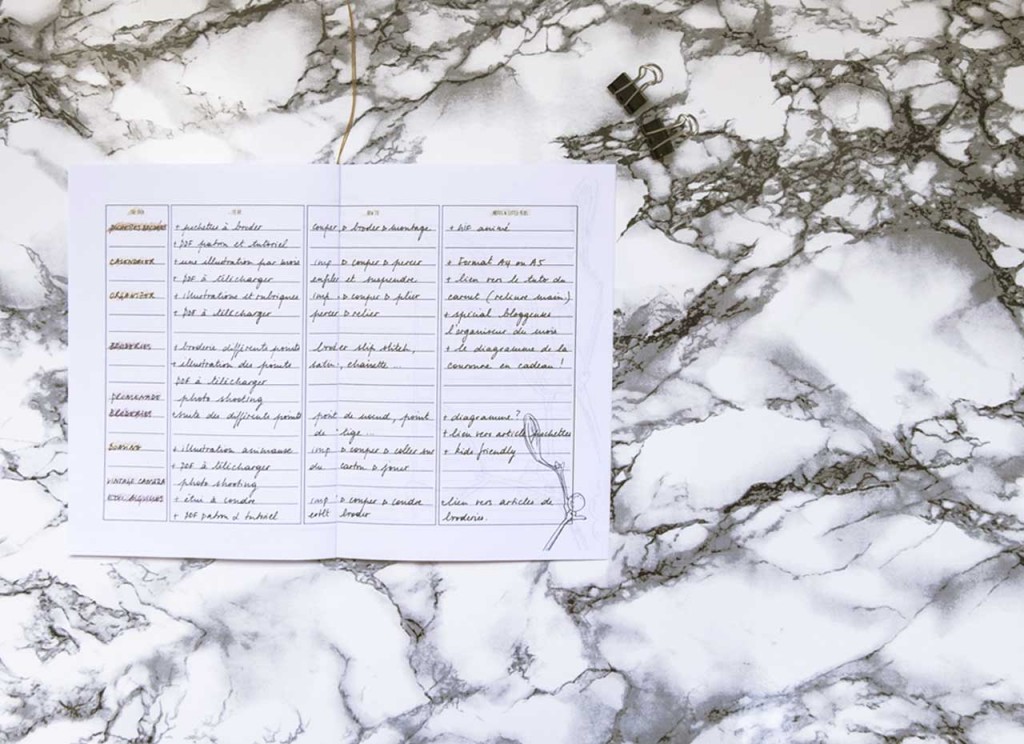 HOW TO
POCHETTES BRODÉES + pochettes à broder couper D broder D montage + GIF animé
+ PDF patron et tutoriel
CALENDRIER + une illustration par mois imp D couper D percer + Format A4 ou A5
+ PDF à télécharger enfiler et suspendre + lien vers le tuto du
ORGANIZER + illustrations et rubriques imp D couper D plier carnet (reliure main)
+ PDF à télécharger percer D relier + spécial bloggeuse
l'organiseur du mois
BRODERIES + broderie différents points broder slip stitch, + le diagramme de la
+ illustration des points satin, chainette... couronne en cadeau!
PDF à télécharger
PROMENADE photo shooting
BRODERIES + suite des différents points point de nœud, point + diagramme?
de tige... + lien vers article pochettes
+ illustration animaux imp D couper D coller sur + kids friendly
+ PDF à télécharger du carton D jouer
VINTAGE CAMERA photo shooting
ETUI AIGUILLES + étui à coudre imp D couper D coudre lien vers articles de
+ PDF patron & tutoriel broder broderies.